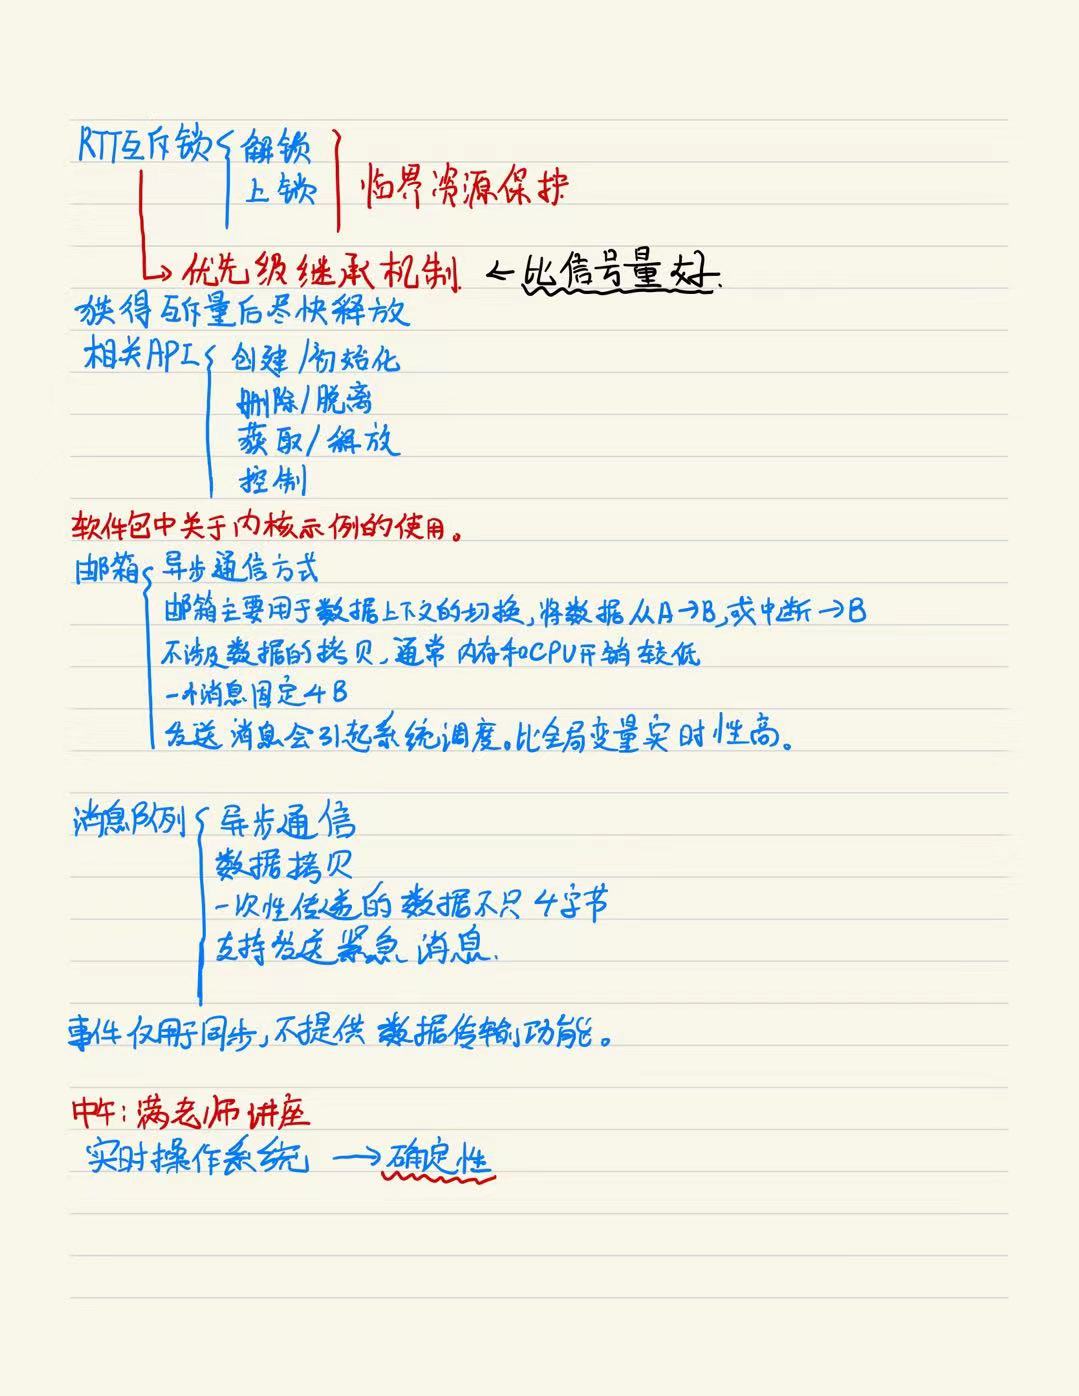 RTT互斥锁 解锁
上锁
临界资源保护
优先级继承机制. ← 比信号量好.
获得互斥量后尽快释放
相关API 创建/初始化
删除/脱离
获取/释放
控制
软件包中关于内核示例的使用。
邮箱 异步通信方式
邮箱主要用于数据上下文的切换,将数据从A→B,或中断→B
不涉及数据的拷贝,通常内存和CPU开销较低
一个消息固定4B
发送消息会引起系统调度。比全局变量实时性高。
消息队列 异步通信
数据拷贝
一次性传递的数据不只4字节
支持发送紧急消息.
事件仅用于同步,不提供数据传输功能。
中午:满老师讲座
实时操作系统 → 确定性